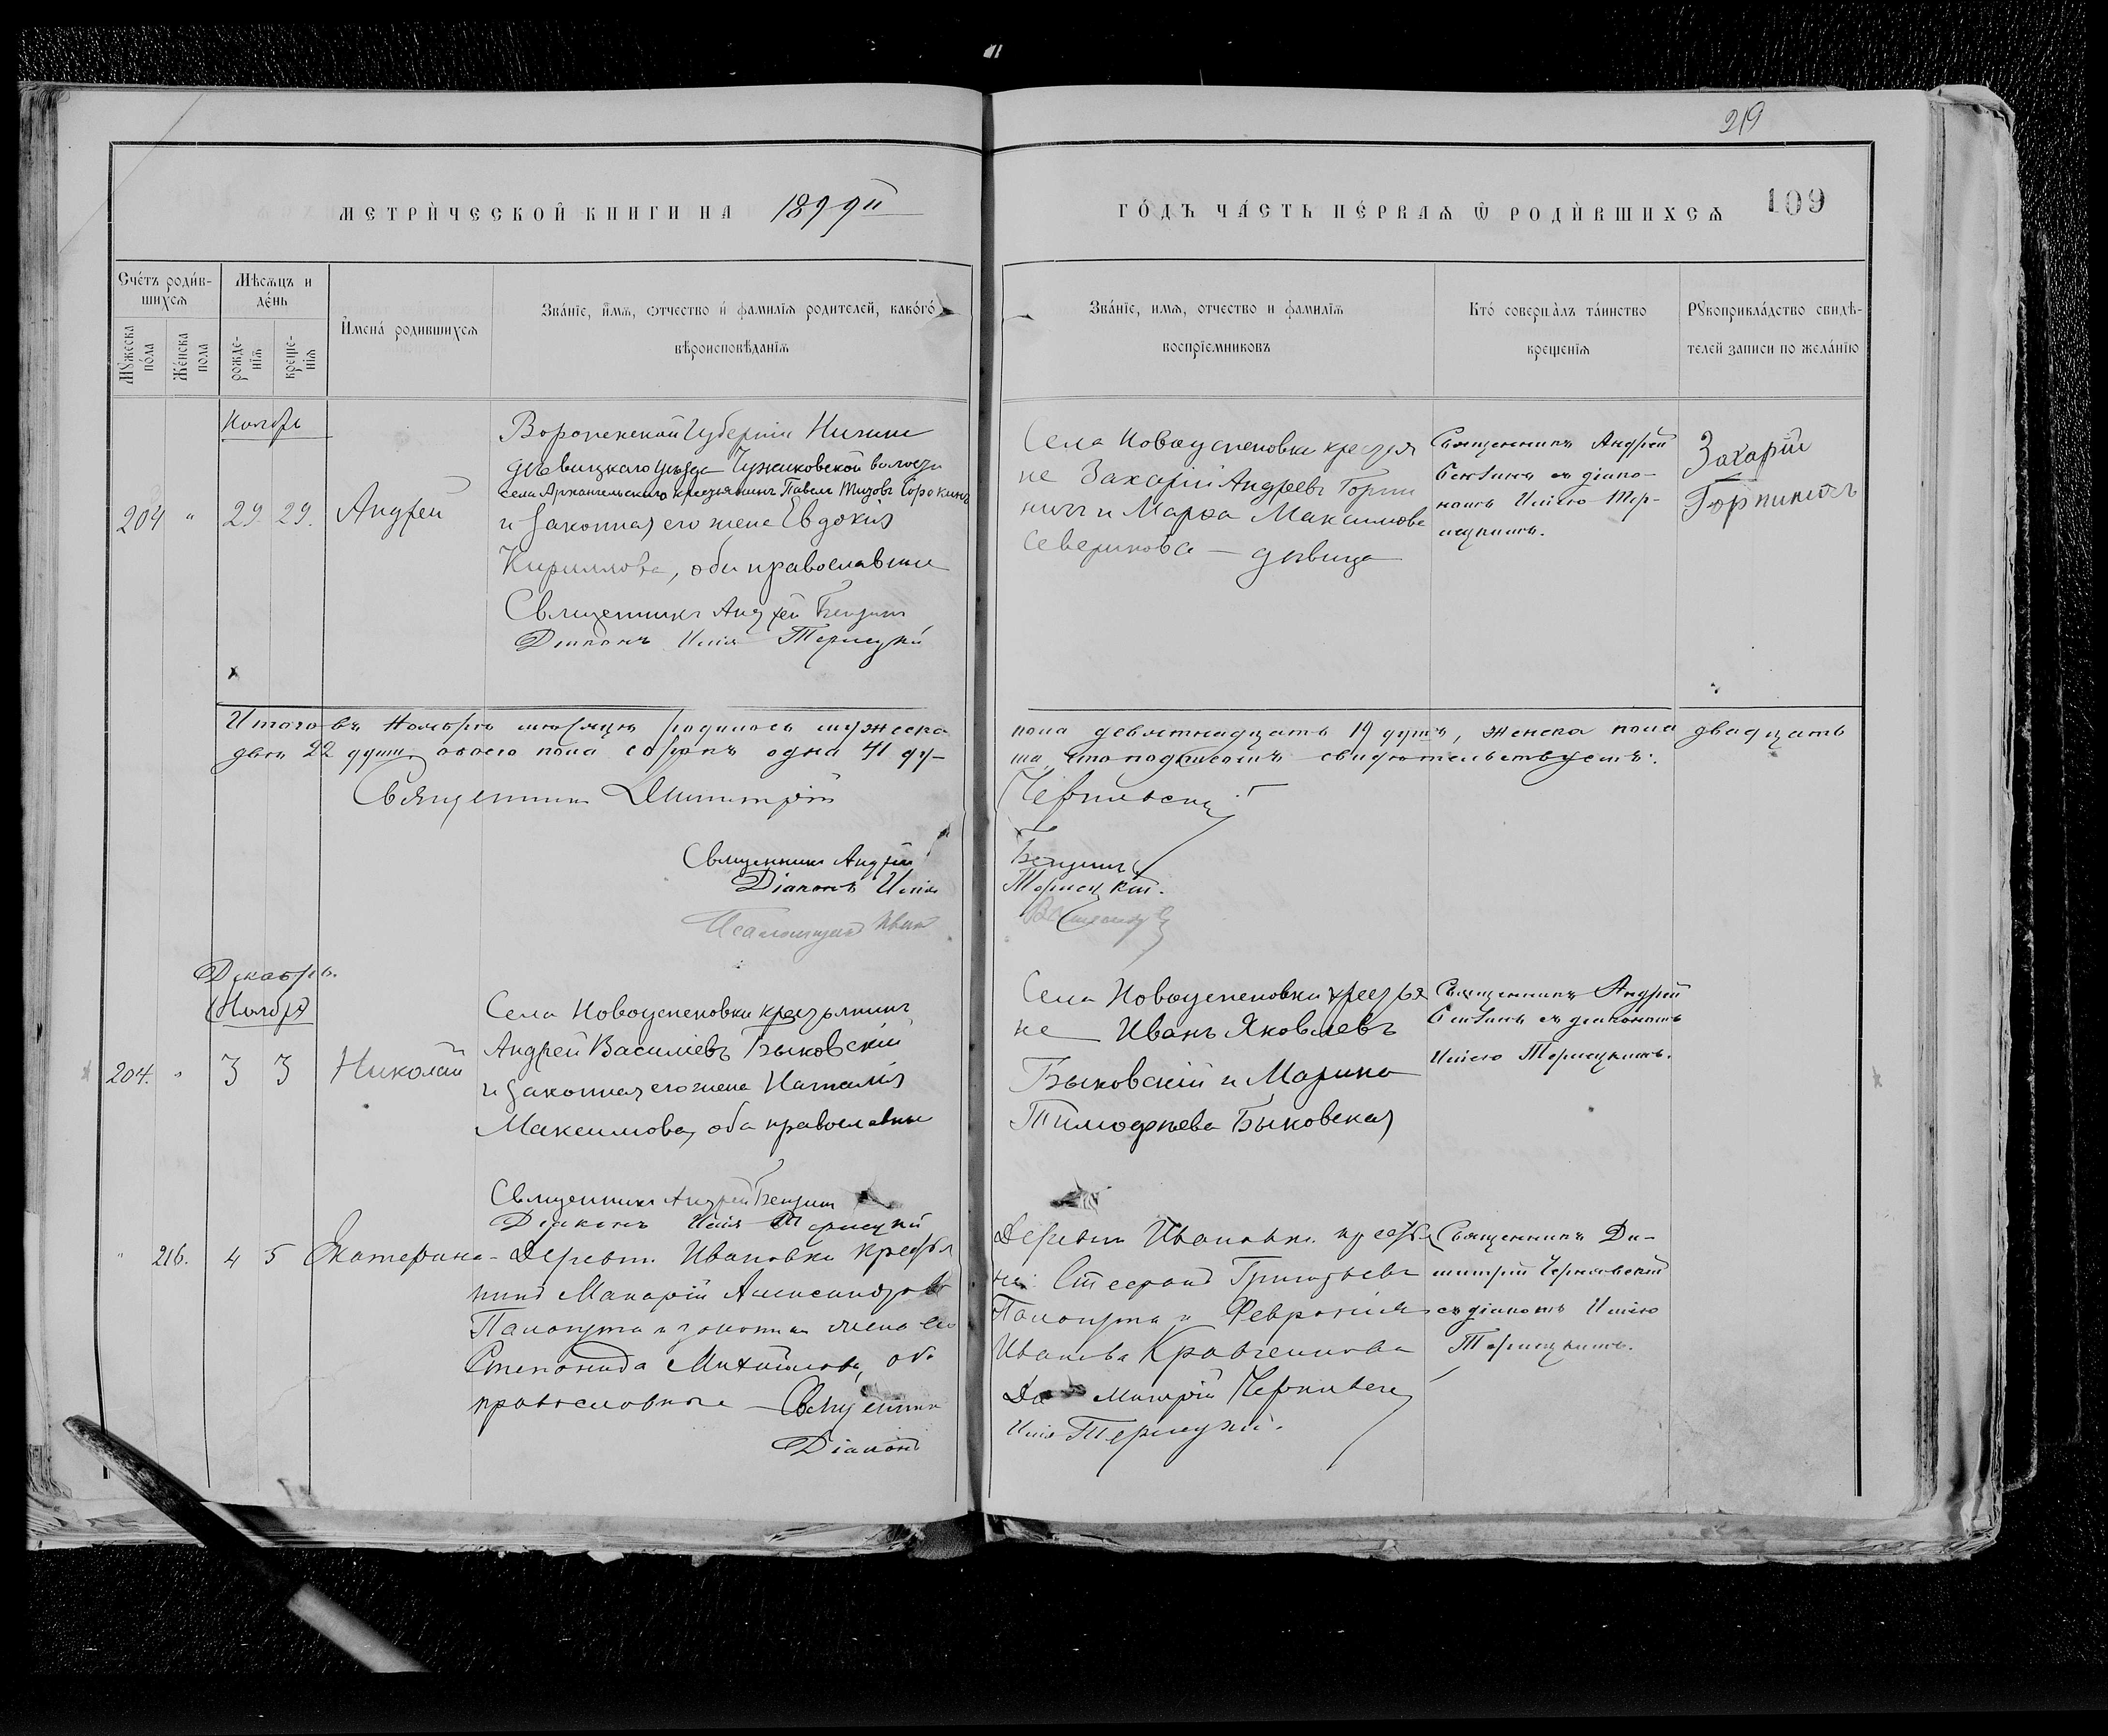 219
МЕТРИЧЕСКОЙ КНИГИ НА 1899й
ГОДЪ ЧАСТЬ ПЕРВАЯ Ѿ РОДИВШИХСЯ 109
Счетъ родив-
шихся
Мѣсяцъ и
день
Мужеска
пола
Женска
пола
рожде-
нія
креще-
нія
Имена родившихся
Званіе, имя, отчество и фамилія родителей, какого
вѣроисповѣданія
Званіе, имя, отчество и фамилія
воспріемниковъ
Кто совершалъ таинство
крещенія
Рукоприкладство свидѣ-
телей записи по желанію
Ноябрь
204 " 29 29. Андрей
Воронежской Губерніи Нижне
дѣвицкаго уѣзда Чужиковской волости
села Архангельскаго крестьянинъ Павелъ Титовъ Сорокинъ
и законная его жена Евдокия
Кириллова, оба православные
Священникъ Андрей
Діаконъ Илія Терлецкій
Села Новоуспеновки крестья
не Захарій Андреевъ Горпи
ничъ и Марѳа Максимова
Северинова - дѣвица
Священникъ Андрей
съ діако-
номъ Иліею Тер-
лецкимъ.
Захарій
Горпиничъ
Итого въ Ноябрѣ мѣсяцѣ родилось мужеска
пола девятнадцать 19 душъ, женска пола двадцать
двѣ 22 души, обоего пола сорокъ одна 41 ду-
ша, что подписомъ свидѣтельствуемъ:
Священникъ Димитрій
Чернявскій
Священникъ Андрей
Діаконъ Илія
Терлецкій.
Псаломщикъ Иванъ
Декабрь.
(Ноябрь)
204. " 3 3 Николай
Села Новоуспеновки крестьянинъ
Андрей Василіевъ Быковскій
и законная его жена Наталія
Максимова, оба православные
Священникъ Андрей
Діаконъ Илія Терлецкій
Села Новоуспеновки крестья
не Иванъ Яковлевъ
Быковскій и Марина
Тимофѣева Быковская
Священникъ Андрей
съ діакономъ
Иліею Терлецкимъ.
" 216. 4 5 Екатерина
Деревни Ивановки крестья
нинъ Макарій Александровъ
Паламута и законная жена его
Степанида Михайлова, оба
православные Священникъ
Діаконъ
Деревни Ивановки крестья
не: Стефанъ Григорьевъ
Паламута и Февронія
Иванова Кравченкова
Димитрій Чернявскій
Илія Терлецкій.
Священникъ Ди-
митрій Чернявскій
съ діакономъ Иліею
Терлецкимъ.